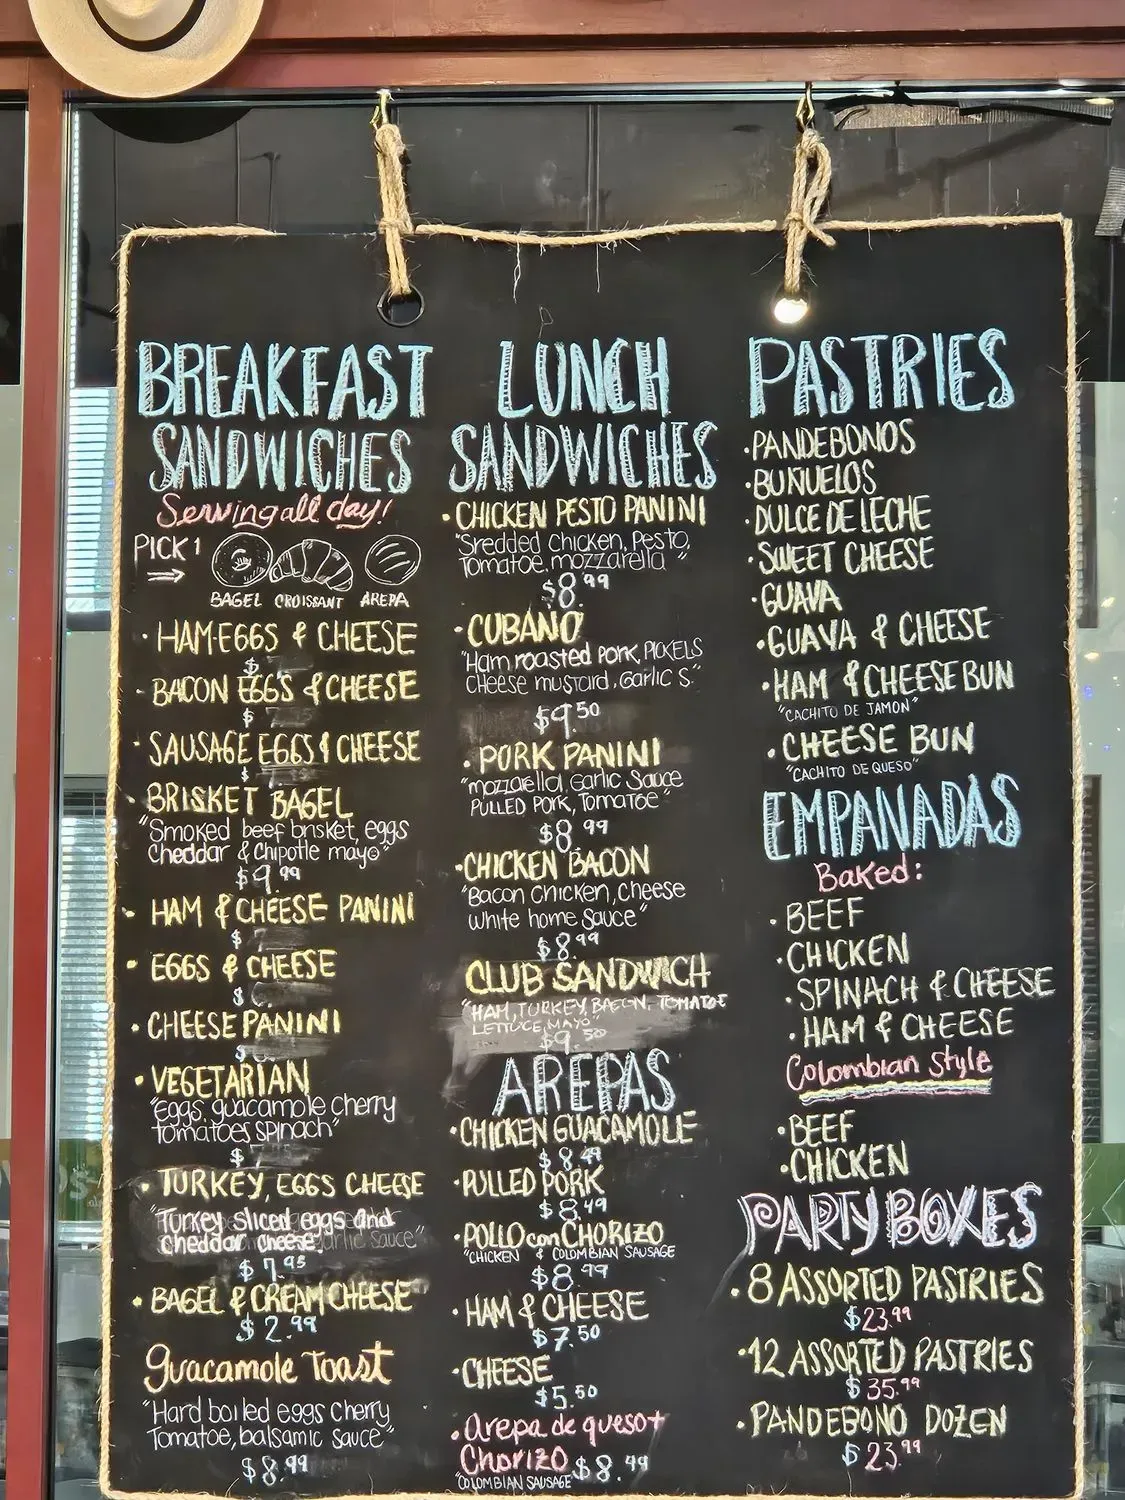 BREAKFAST
SANDWICHES
Serving all day!
PICK 1
BAGEL CROISSANT AREPA
· HAM·EGGS & CHEESE
$
· BACON EGGS & CHEESE
$
· SAUSAGE EGGS & CHEESE
$
· BRISKET BAGEL
"Smoked beef brisket, eggs
Cheddar & chipotle mayo"
$9.99
· HAM & CHEESE PANINI
$
· EGGS & CHEESE
$
· CHEESE PANINI
$
· VEGETARIAN
"Eggs, guacamole cherry
tomatoes spinach"
$
· TURKEY, EGGS CHEESE
"Turkey sliced eggs and
cheddar cheese,
$7.95
· BAGEL & CREAM CHEESE
$2.99
guacamole Toast
"Hard boiled eggs cherry
Tomatoe, balsamic sauce"
$8.99
LUNCH
SANDWICHES
· CHICKEN PESTO PANINI
"Sredded chicken, Pesto,
Tomatoe, mozzarella"
$8.99
· CUBANO
"Ham, roasted Pork, PICKELS
Cheese mustard, Garlic S."
$9.50
· PORK PANINI
"mozzarella, Garlic Sauce
PULLED PORK, Tomatoe"
$8.99
· CHICKEN BACON
"Bacon Chicken, cheese
white home sauce"
$8.99
CLUB SANDWICH
"HAM, TURKEY, BACON, TOMATOE
LETTUCE, MAYO"
$9.50
AREPAS
· CHICKEN GUACAMOLE
$8.49
· PULLED PORK
$8.49
· POLLO con CHORIZO
"CHICKEN & COLOMBIAN SAUSAGE
$8.99
· HAM & CHEESE
$7.50
· CHEESE
$5.50
· Arepa de queso +
Chorizo $8.49
"COLOMBIAN SAUSAGE
PASTRIES
· PANDEBONOS
· BUÑUELOS
· DULCE DE LECHE
· SWEET CHEESE
· GUAVA
· GUAVA & CHEESE
· HAM & CHEESE BUN
"CACHITO DE JAMON"
· CHEESE BUN
"CACHITO DE QUESO"
EMPANADAS
Baked:
· BEEF
· CHICKEN
· SPINACH & CHEESE
· HAM & CHEESE
Colombian Style
· BEEF
· CHICKEN
PARTY BOXES
· 8 ASSORTED PASTRIES
$23.99
· 12 ASSORTED PASTRIES
$35.99
· PANDEBONO DOZEN
$23.99